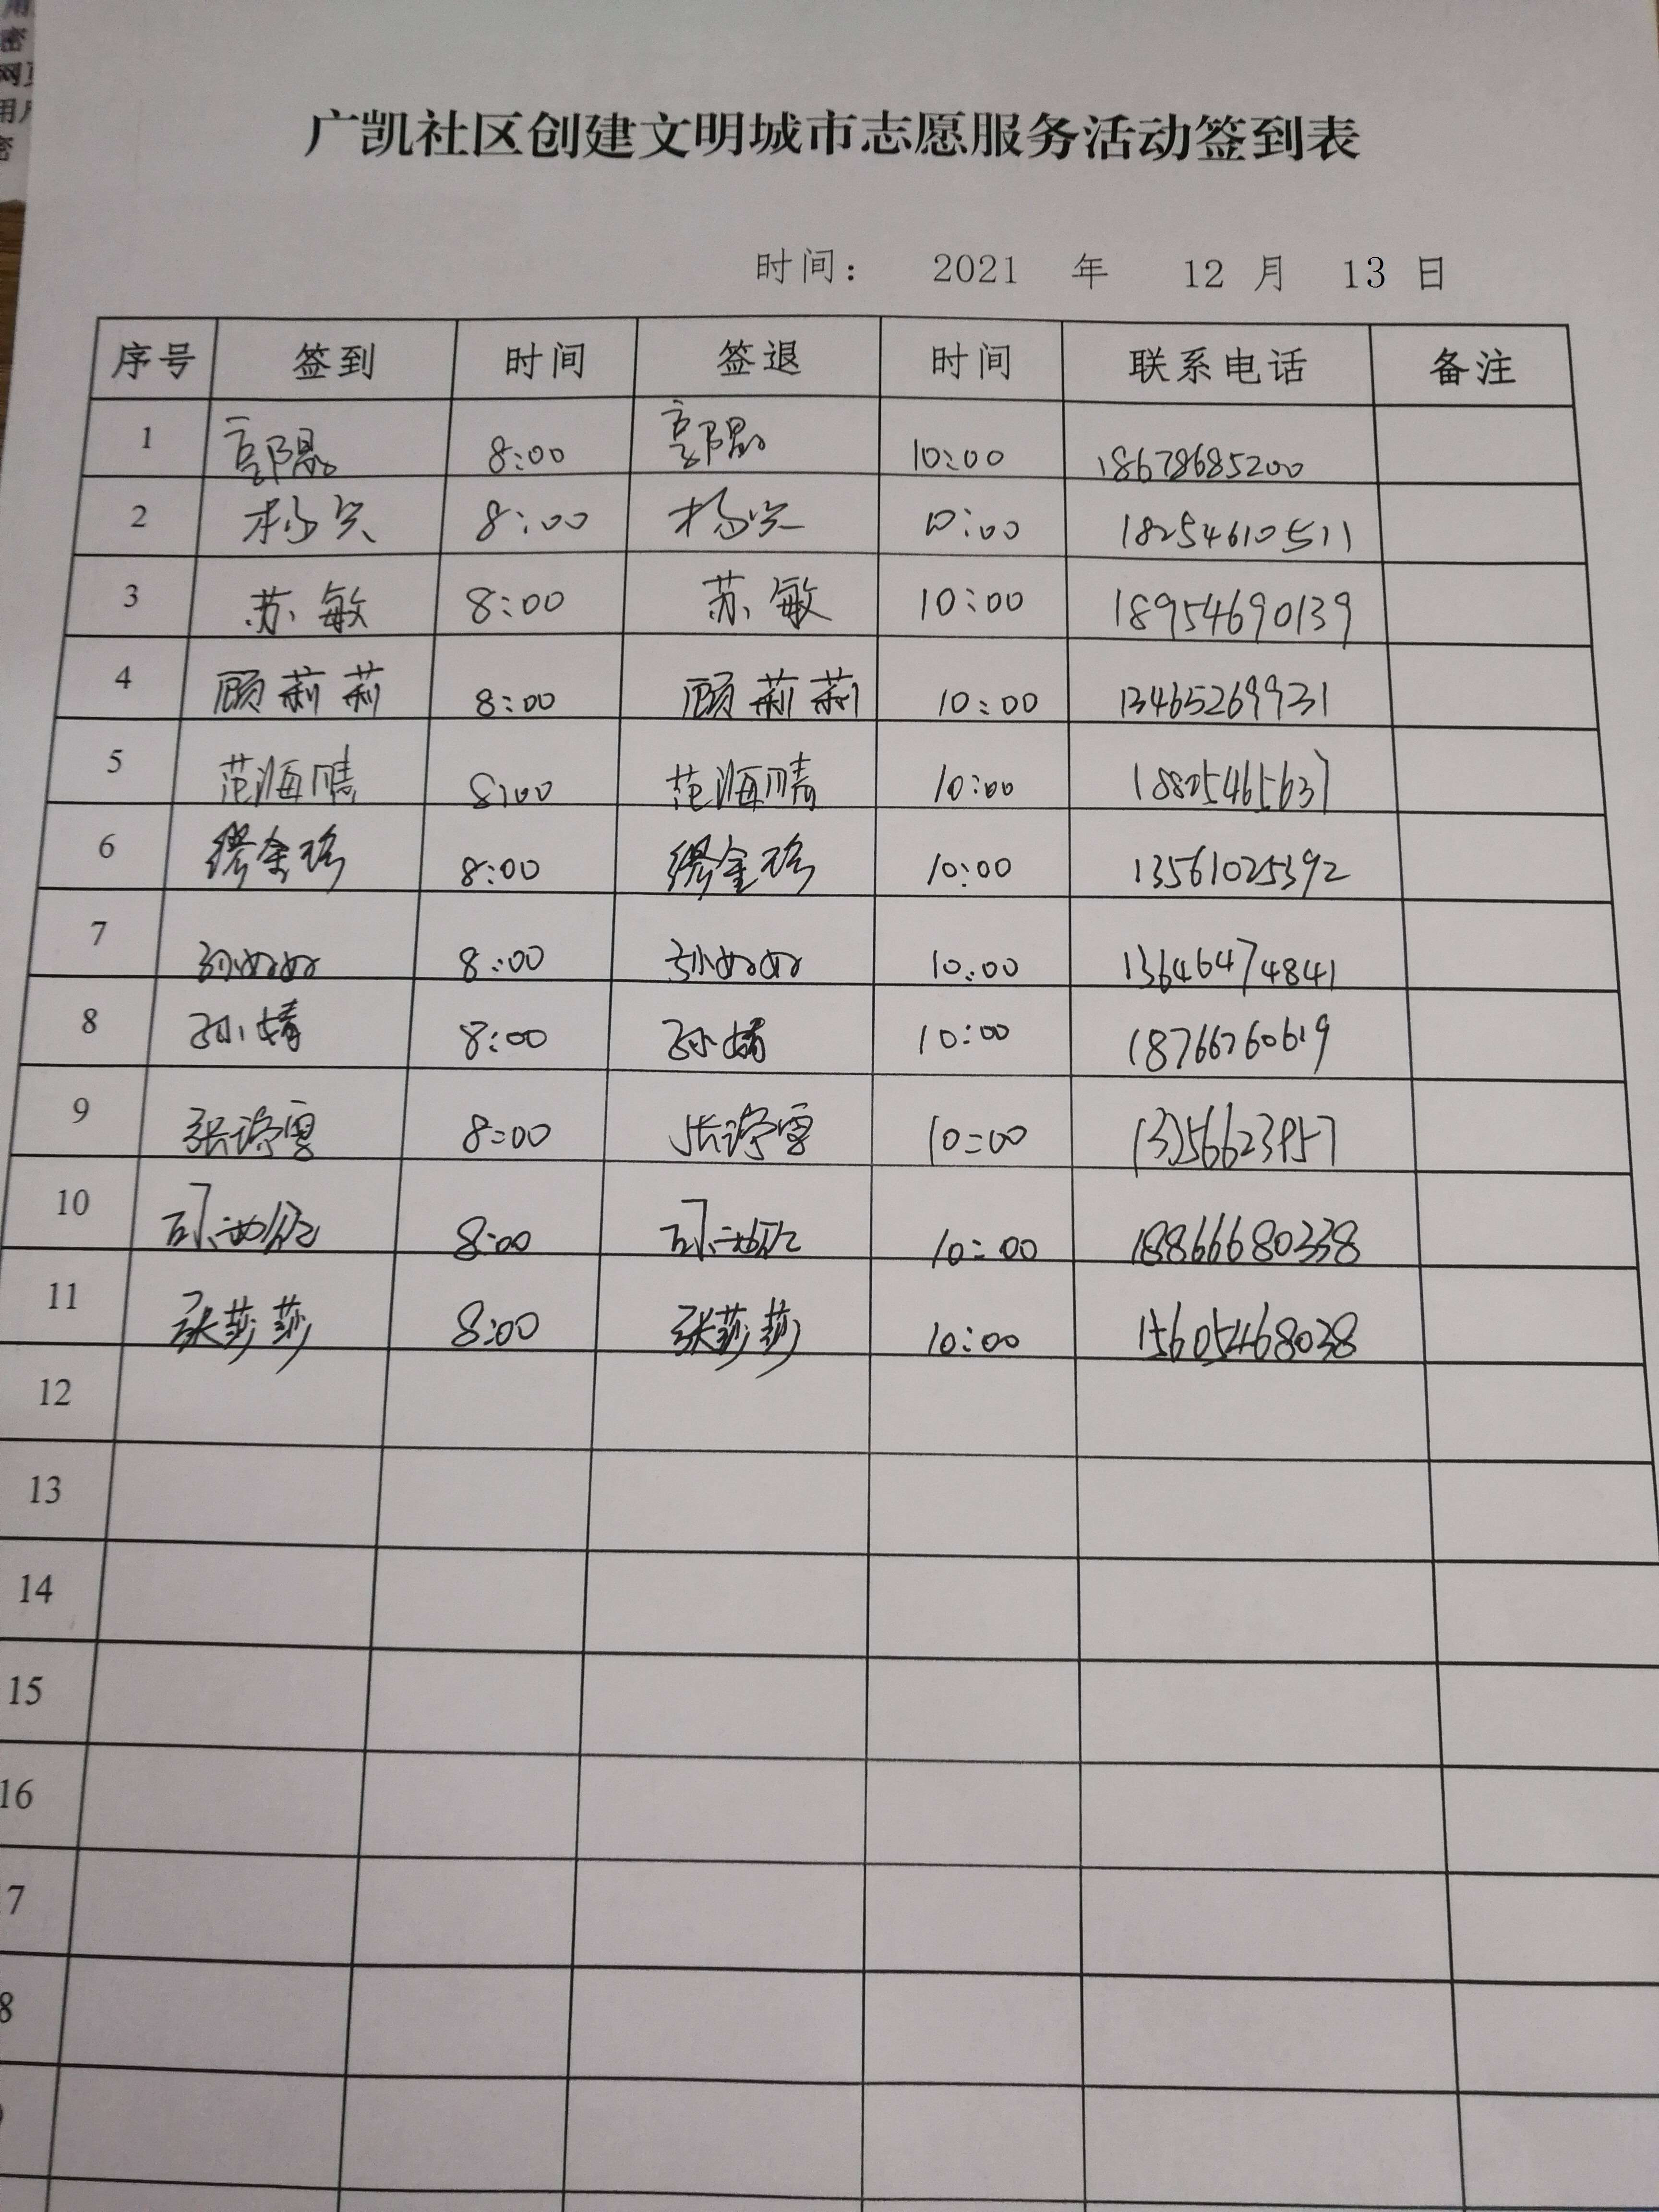 用
密
网页
用户
密
广凯社区创建文明城市志愿服务活动签到表
时间： 2021 年 12 月 13 日
序号 签到 时间 签退 时间 联系电话 备注
1 郭晶 8:00 郭晶 10:00 18678685200
2 杨兴 8:00 杨兴 10:00 18254610511
3 苏敏 8:00 苏敏 10:00 18954690139
4 顾莉莉 8:00 顾莉莉 10:00 13465269931
5 范海晴 8:00 范海晴 10:00 18805465637
6 缪金玲 8:00 缪金玲 10:00 13561025392
7 孙如如 8:00 孙如如 10:00 13646474841
8 孙婧 8:00 孙婧 10:00 18766760619
9 张诗雪 8:00 张诗雪 10:00
10 8:00 10:00 18866680338
11 张莎莎 8:00 张莎莎 10:00 15605468038
12
13
14
15
16
7
8